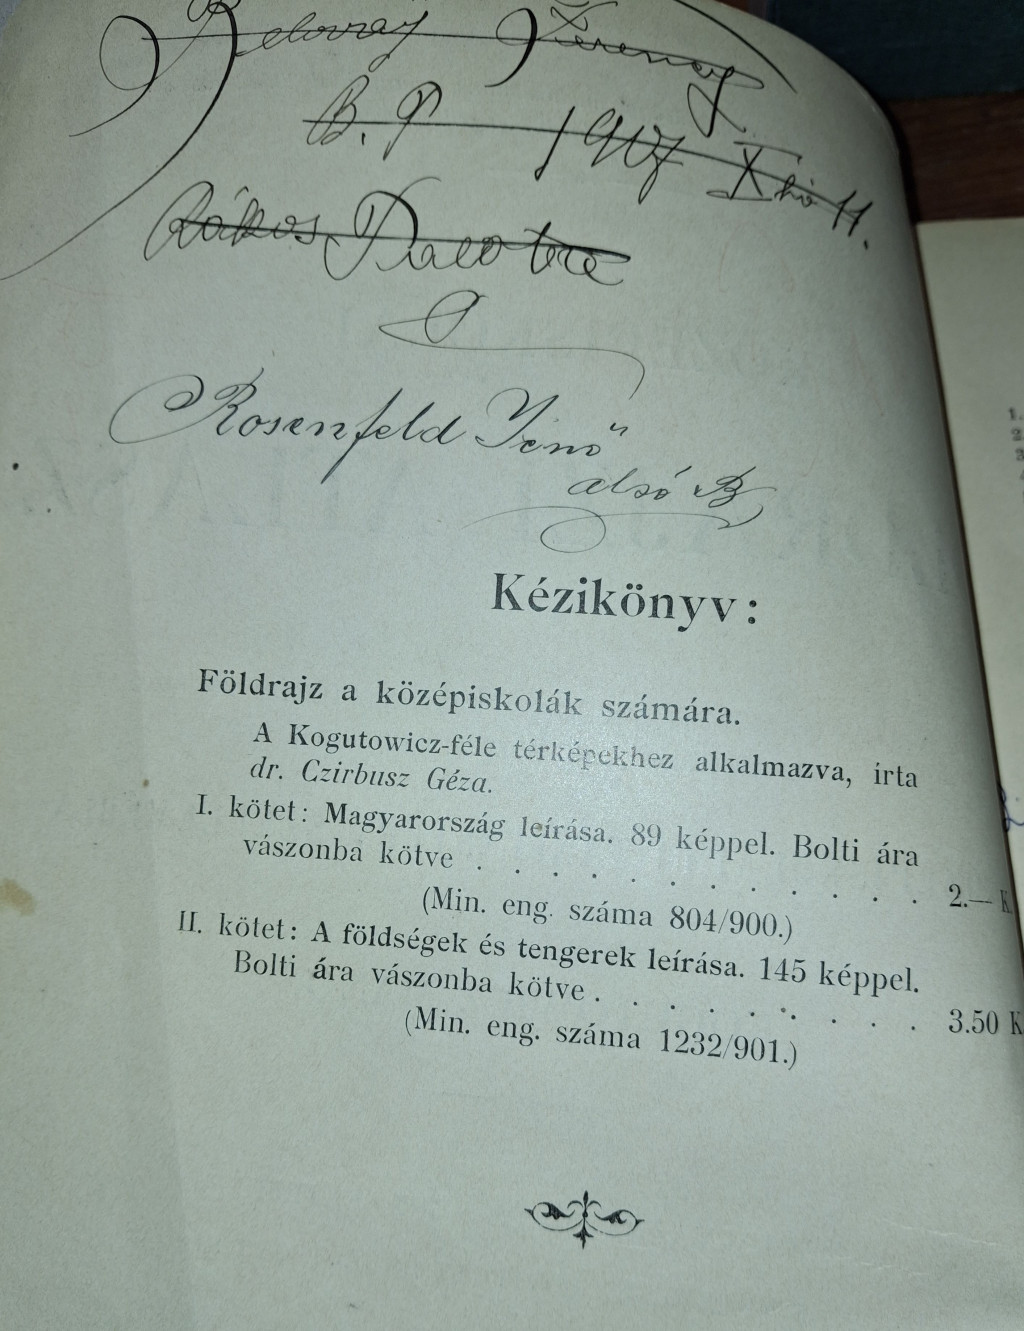 Ferenc
B. P 1907 X hó 11.
Rákos Palota
Rosenfeld Jenő
alsó B
Kézikönyv:
Földrajz a középiskolák számára.
A Kogutowicz-féle térképekhez alkalmazva, írta
dr. Czirbusz Géza.
I. kötet: Magyarország leírása. 89 képpel. Bolti ára
vászonba kötve . . . . . . . . . . 2.— K
(Min. eng. száma 804/900.)
II. kötet: A földségek és tengerek leírása. 145 képpel.
Bolti ára vászonba kötve . . . . . . . . . 3.50 K
(Min. eng. száma 1232/901.)
1.
2.
3